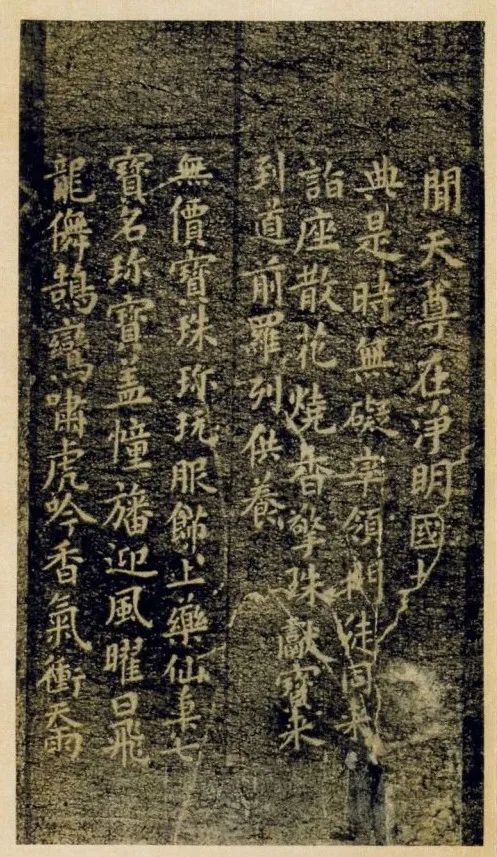 聞天尊在净明國土
典是時無礙率領門徒同来
詣座散花燒香擎珠獻寶来
到道前羅列供養
無價寶珠珎玩服飾上藥仙草七
寶名珎寶盖幢旛迎風曜日飛
龍儛鵠鸞嘯虎吟香氣衝天雨